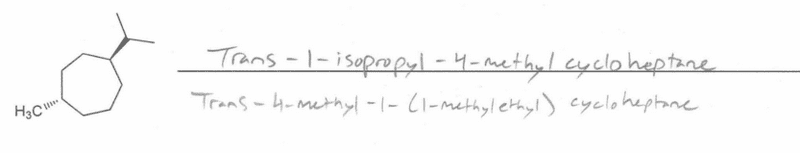 Trans-1-isopropyl-4-methyl cycloheptane
Trans-4-methyl-1-(1-methylethyl) cycloheptane
H3C